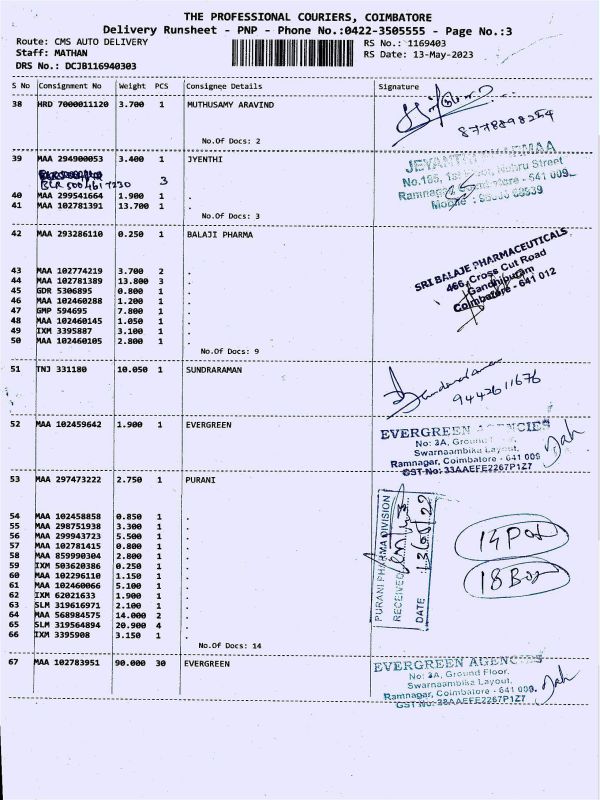 THE PROFESSIONAL COURIERS, COIMBATORE
Delivery Runsheet - PNP - Phone No.:0422-3505555 - Page No.:3
Route: CMS AUTO DELIVERY RS No.: 1169403
Staff: MATHAN RS Date: 13-May-2023
DRS No.: DCJB116940303
S No Consignment No Weight PCS Consignee Details Signature
38 HRD 7000011120 3.700 1 MUTHUSAMY ARAVIND
8778898254
No.Of Docs: 2
39 MAA 294900053 3.400 1 JYENTHI
BLR 5004617230 3
40 MAA 299541664 1.900 1 .
41 MAA 102781391 13.700 1 .
No.Of Docs: 3
No.185, 1st Floor, Nehru Street
Ramnagar, Coimbatore - 641 009.
42 MAA 293286110 0.250 1 BALAJI PHARMA
43 MAA 102774219 3.700 2 .
44 MAA 102781389 13.800 3 .
45 GDR 5306895 0.800 1 .
46 MAA 102460288 1.200 1 .
47 GMP 594695 7.800 1 .
48 MAA 102460145 1.050 1 .
49 IXM 3395887 3.100 1 .
50 MAA 102460105 2.800 1 .
No.Of Docs: 9
SRI BALAJE PHARMACEUTICALS
466, Cross Cut Road
Gandhipuram
Coimbatore - 641 012
51 TNJ 331180 10.050 1 SUNDRARAMAN
Sundararaman
9442611676
52 MAA 102459642 1.900 1 EVERGREEN
EVERGREEN AGENCIES
No: 3A, Ground Floor,
Swarnaambika Layout,
Ramnagar, Coimbatore - 641 009
GST No: 33AAEFE2267P1Z7
53 MAA 297473222 2.750 1 PURANI
54 MAA 102458858 0.850 1 .
55 MAA 298751938 3.300 1 .
56 MAA 299943723 5.500 1 .
57 MAA 102781415 0.800 1 .
58 MAA 859990304 2.800 1 .
59 IXM 503620386 0.250 1 .
60 MAA 102296110 1.150 1 .
61 MAA 102460066 5.100 1 .
62 IXM 62021633 1.900 1 .
63 SLM 319616971 2.100 1 .
64 MAA 568984575 14.000 2 .
65 SLM 319564894 20.900 4 .
66 IXM 3395908 3.150 1 .
No.Of Docs: 14
PURANI PHARMA DIVISION
RECEIVED
DATE :
14 Pod
18 Box
67 MAA 102783951 90.000 30 EVERGREEN
EVERGREEN AGENCIES
No: 3A, Ground Floor,
Swarnaambika Layout,
Ramnagar, Coimbatore - 641 009.
GST No: 33AAEFE2267P1Z7